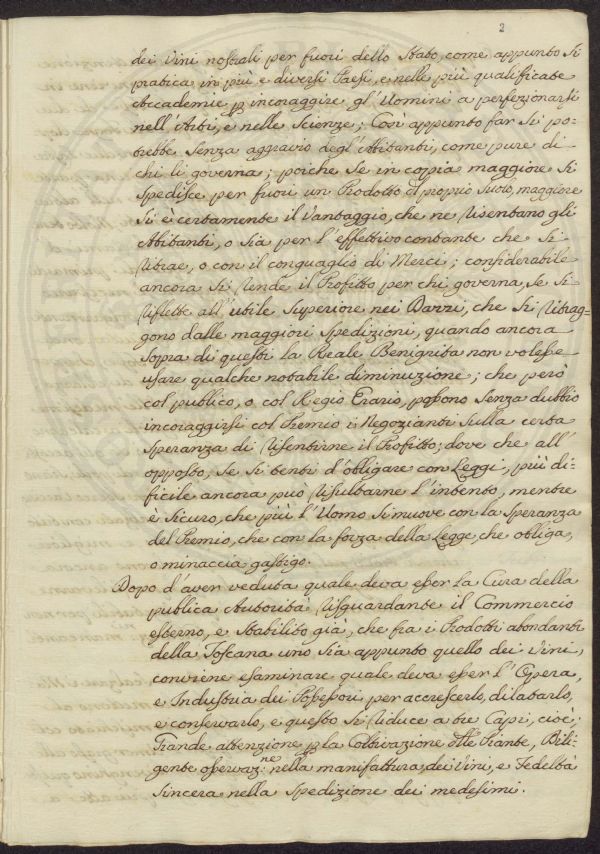 2
dei Vini nostrali per fuori dello Stato, come appunto si
pratica in più, e diversi Paesi, e nelle più qualificate
Accademie p incoraggire gl'Uomini a perfezionarsi
nell'Arti, e nelle Scienze; Così appunto far si po=
trebbe senza aggravio degl'Abitanti, come pure di
chi li governa; poiche se in coppia maggiore si
spedisce per fuori un Prodotto di proprio suolo, maggiore
si è certamente il vantaggio, che ne risentano gli
Abitanti, o sia per l'effettivo contante che si
ritrae, o con il conguaglio di Merci; considerabile
ancora si rende il Profitto per chi governa, se si
riflette all'utile superiore nei Dazzi, che si ritrag=
gono dalle maggiori spedizioni, quando ancora
sopra di questi la Reale Benignita non volesse
usare qualche notabile diminuzione; che però
col publico, o col Regio Erario, possono senza dubbio
incoraggirsi col Premio i Negozianti sulla certa
speranza di risentirne il Profitto; dove che all'
opposto, se si tenti d'obligare con Leggi, più di=
ficile ancora può risultarne l'intento, mentre
è sicuro, che più l'Uomo si muove con la speranza
del Premio, che con la forza della Legge, che obliga,
o minaccia gastigo.
Dopo d'aver veduta quale deva esser la Cura della
publica Autorità risguardante il Commercio
esterno, e stabilito già, che fra i Prodotti abondanti
della Toscana uno sia appunto quello dei Vini,
conviene esaminare quale deva esser l'Opera,
e Industria dei Possessori per accrescerlo, dilatarlo,
e conservarlo, e questo si riduce a tre Capi, cioè;
Grande attenzione p la Coltivazione delle Piante, Dili=
gente osservaz.ne nella manifattura dei Vini, e Fedeltà
sincera nella spedizione dei medesimi.